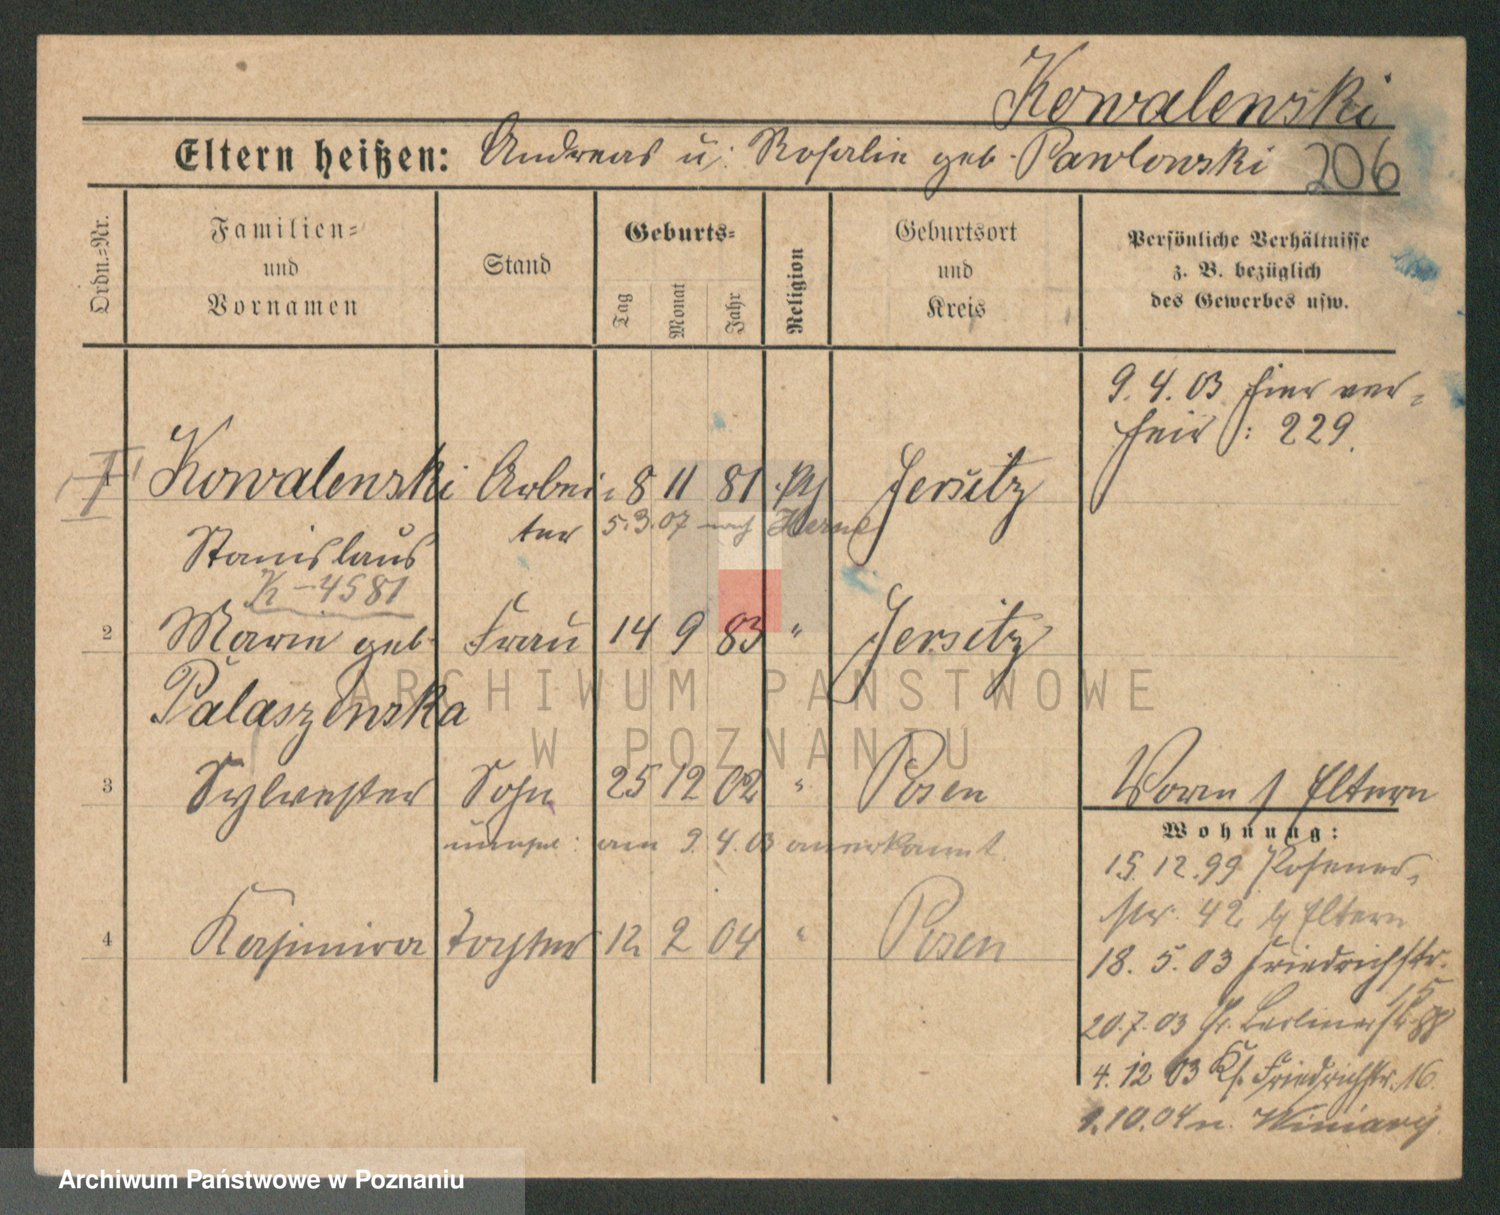 Kowalenski
Eltern heißen: Andreas u. Rosalie geb. Pawlowski 206
Ordn.-Nr.
Familien-
und
Vornamen
Stand
Geburts-
Tag
Monat
Jahr
Religion
Geburtsort
und
Kreis
Persönliche Verhältnisse
z. B. bezüglich
des Gewerbes usw.
9. 4. 03 hier ver-
heir: 229.
1 Kowalenski Arbei- 8 11 81 Jersitz
ter 5.3.07 nach Herne
Stanislaus
K-4581
2 Marie geb. Frau 14 9 83 " Jersitz
Palaszenska
3 Sylvester Sohn 25 12 02 " Posen
am 9. 4. 03 anerkannt.
4 Kasimira Tochter 12 2 04 " Posen
Vorm Eltern
Wohnung:
15. 12. 99 Posener-
str. 42 Eltern
18. 5. 03 Friedrichstr.
15
20. 7. 03 Gr. Berlinerstr.
4. 12 03 Friedrichstr. 16.
1. 10. 04 n. Winiary
ARCHIWUM PAŃSTWOWE
W POZNANIU
Archiwum Państwowe w Poznaniu